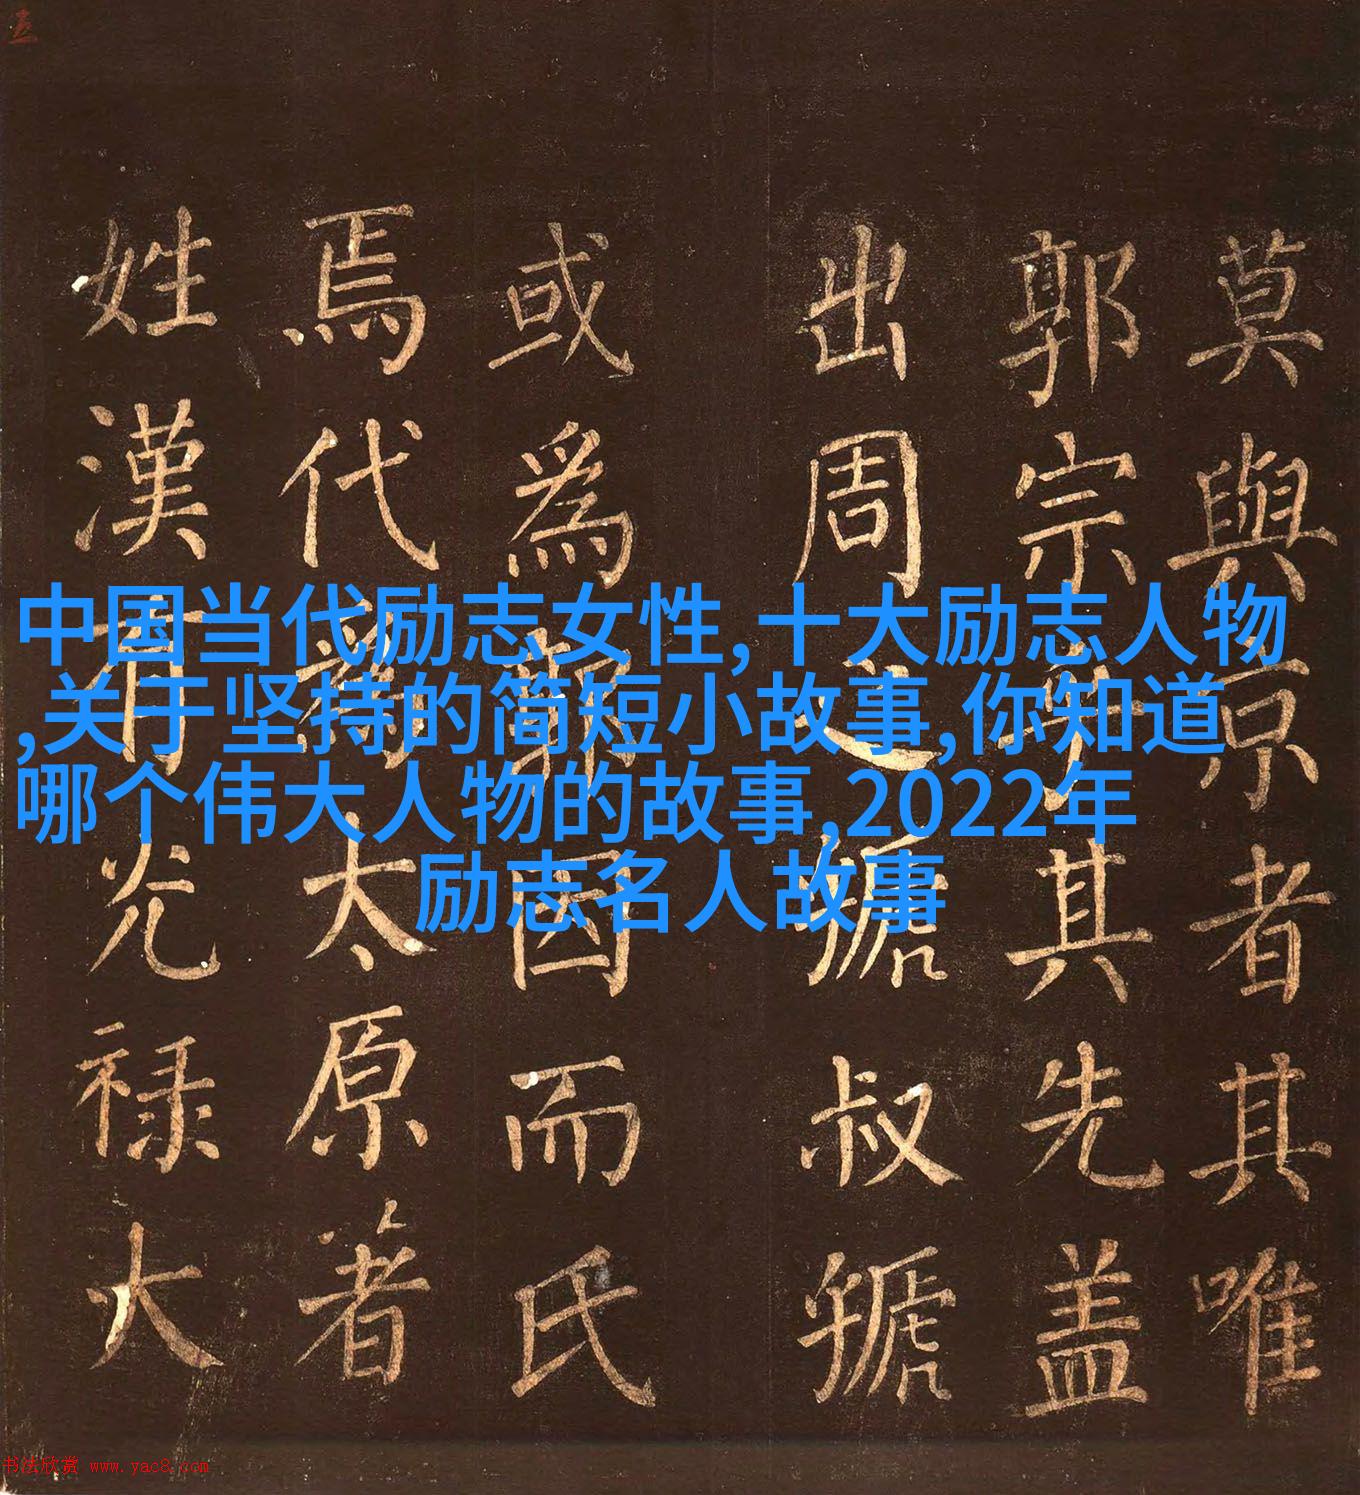 莫與京者其唯
郭宗乎其先盖
出周之虢叔虢
或為郭因而氏
焉代為太原著
姓漢有光禄大
中国当代励志女性,十大励志人物
,关于坚持的简短小故事,你知道
哪个伟大人物的故事,2022年
励志名人故事
书法欣赏 www.yac8.com